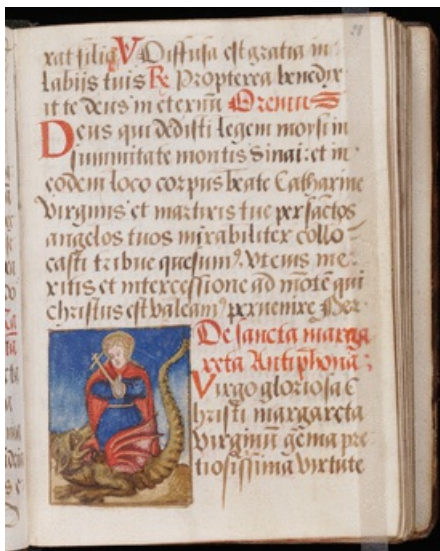 28
xat filiq V Diffusa est gratia in
labijs tuis R Propterea benedix
it te deus in eternū Oremus
Deus qui dedisti legem moysi in
summitate montis Sinai: et in
eodem loco corpus beate Catharine
virginis et martiris tue per sāctos
angelos tuos mirabiliter collo-
casti tribue quesum9. Ut eius me-
ritis et intercessione ad mōtē qui
christus est valeam9 peruenire Per
De sancta marga
reta Antiphona:
Virgo gloriosa C
hristi margareta
virginū gēma pre
tiosissima virtute